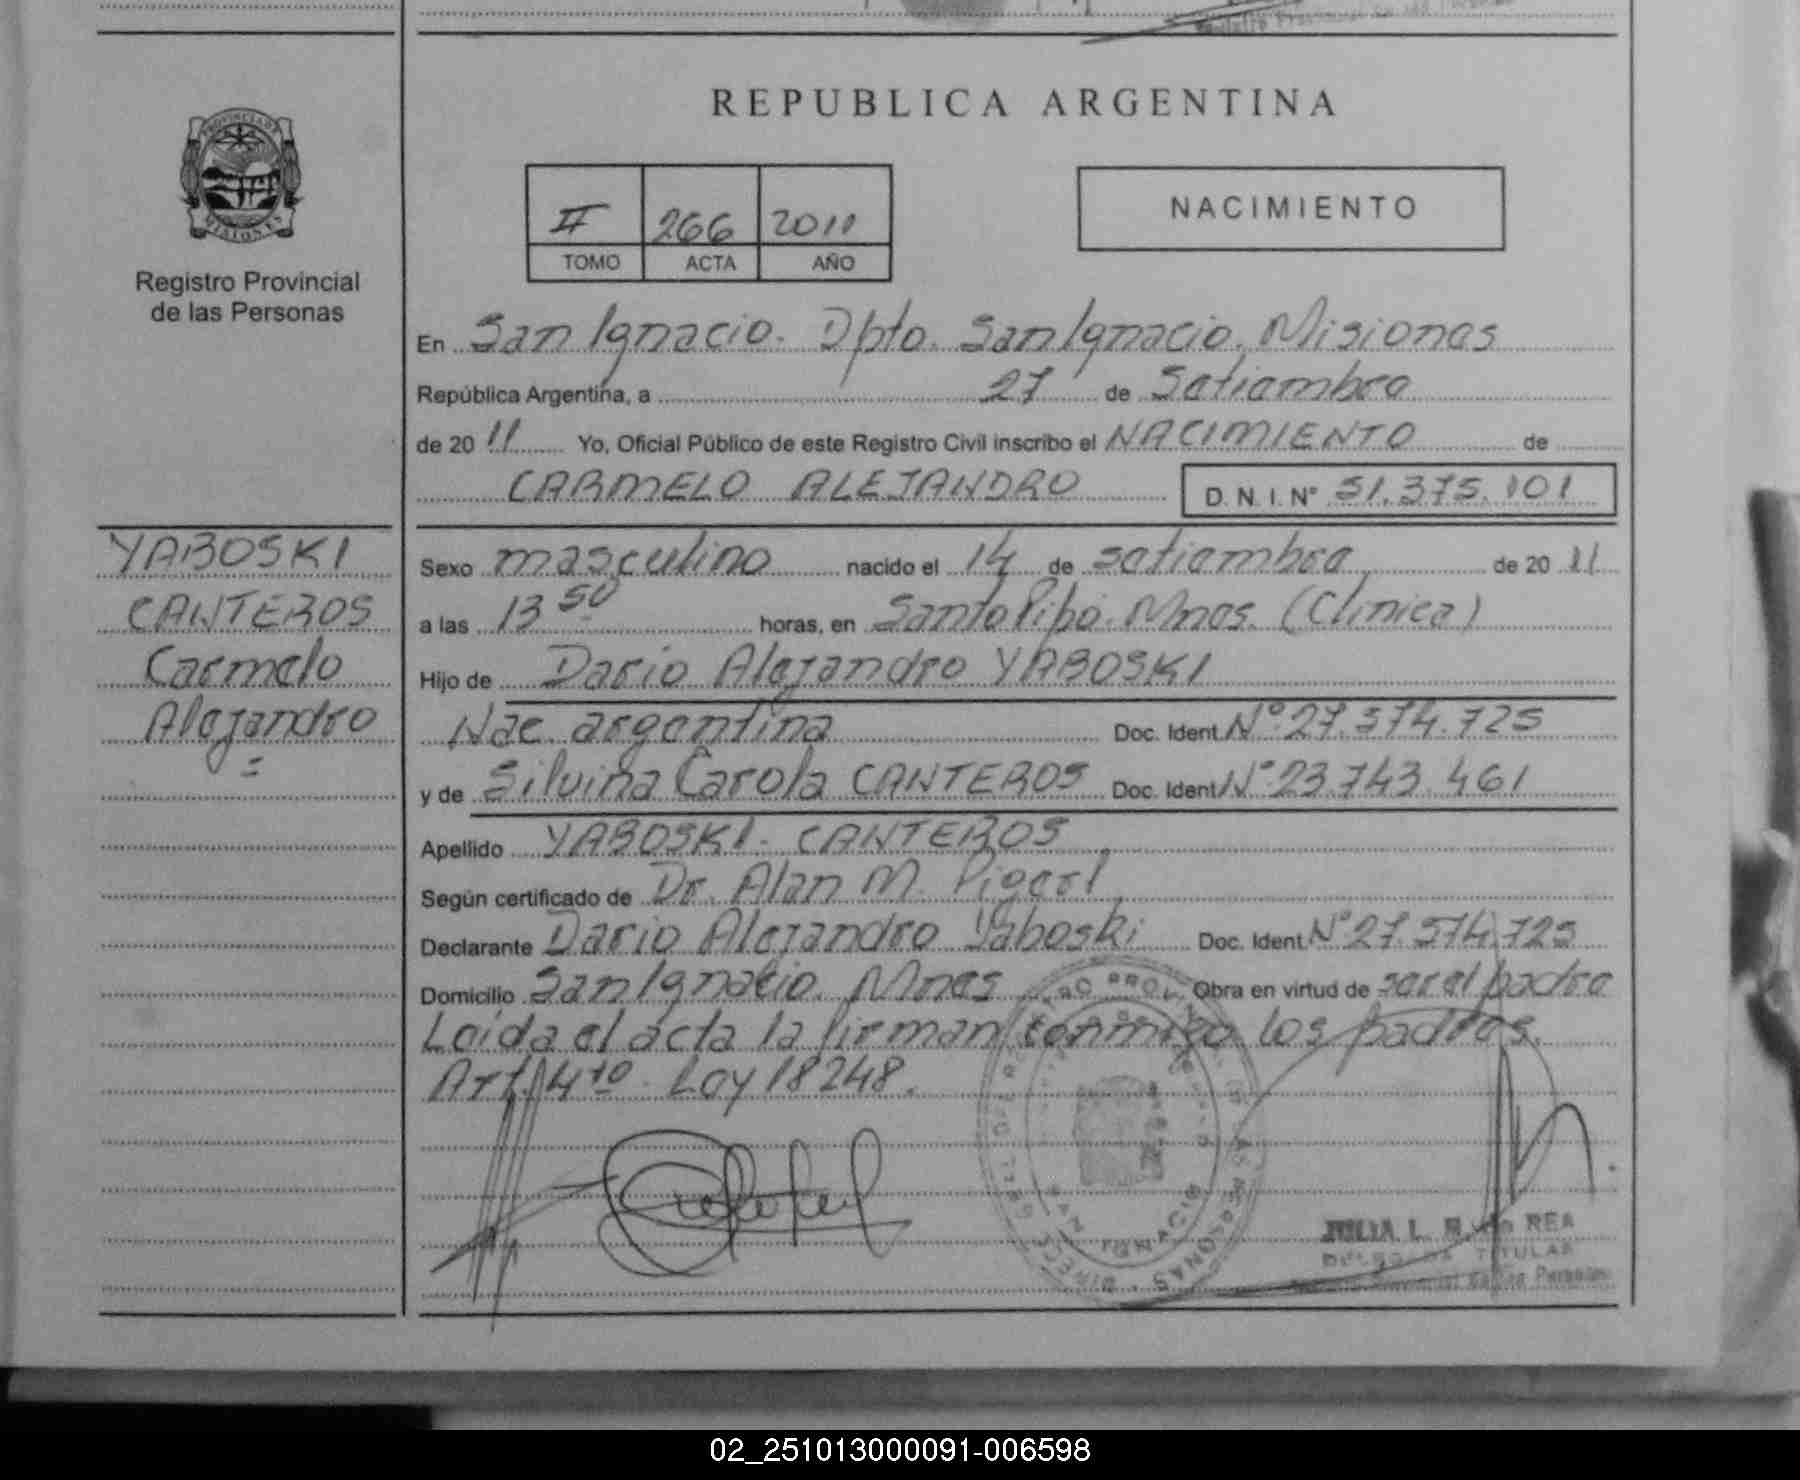 REPUBLICA ARGENTINA
PROVINCIA DE
MISIONES
Registro Provincial
de las Personas
II 266 2011
TOMO ACTA AÑO
NACIMIENTO
En San Ignacio. Dpto. San Ignacio, Misiones
República Argentina, a 27 de Setiembre
de 2011 Yo, Oficial Público de este Registro Civil inscribo el NACIMIENTO de
CARMELO ALEJANDRO D.N.I.Nº 51.375.101
YABOSKI
CANTEROS
Carmelo
Alejandro
=
Sexo masculino nacido el 14 de setiembre de 2011
a las 13 50 horas, en Santo Pipó. Mnes. (Clínica)
Hijo de Dario Alejandro YABOSKI
Nac. argentina Doc. Ident. Nº 27.574.725
y de Silvina Carola CANTEROS Doc. Ident. Nº 23.743.461
Apellido YABOSKI - CANTEROS
Según certificado de Dr. Alan M.
Declarante Dario Alejandro Yaboski Doc. Ident. Nº 27.574.725
Domicilio San Ignacio. Mnes Obra en virtud de ser el padre
Leída el acta la firman conmigo los padres.
Art. 4to. Ley 18248.
SAN IGNACIO
JULIA L. REA
DELEGADA TITULAR
Registro Provincial de las Personas
02_251013000091-006598